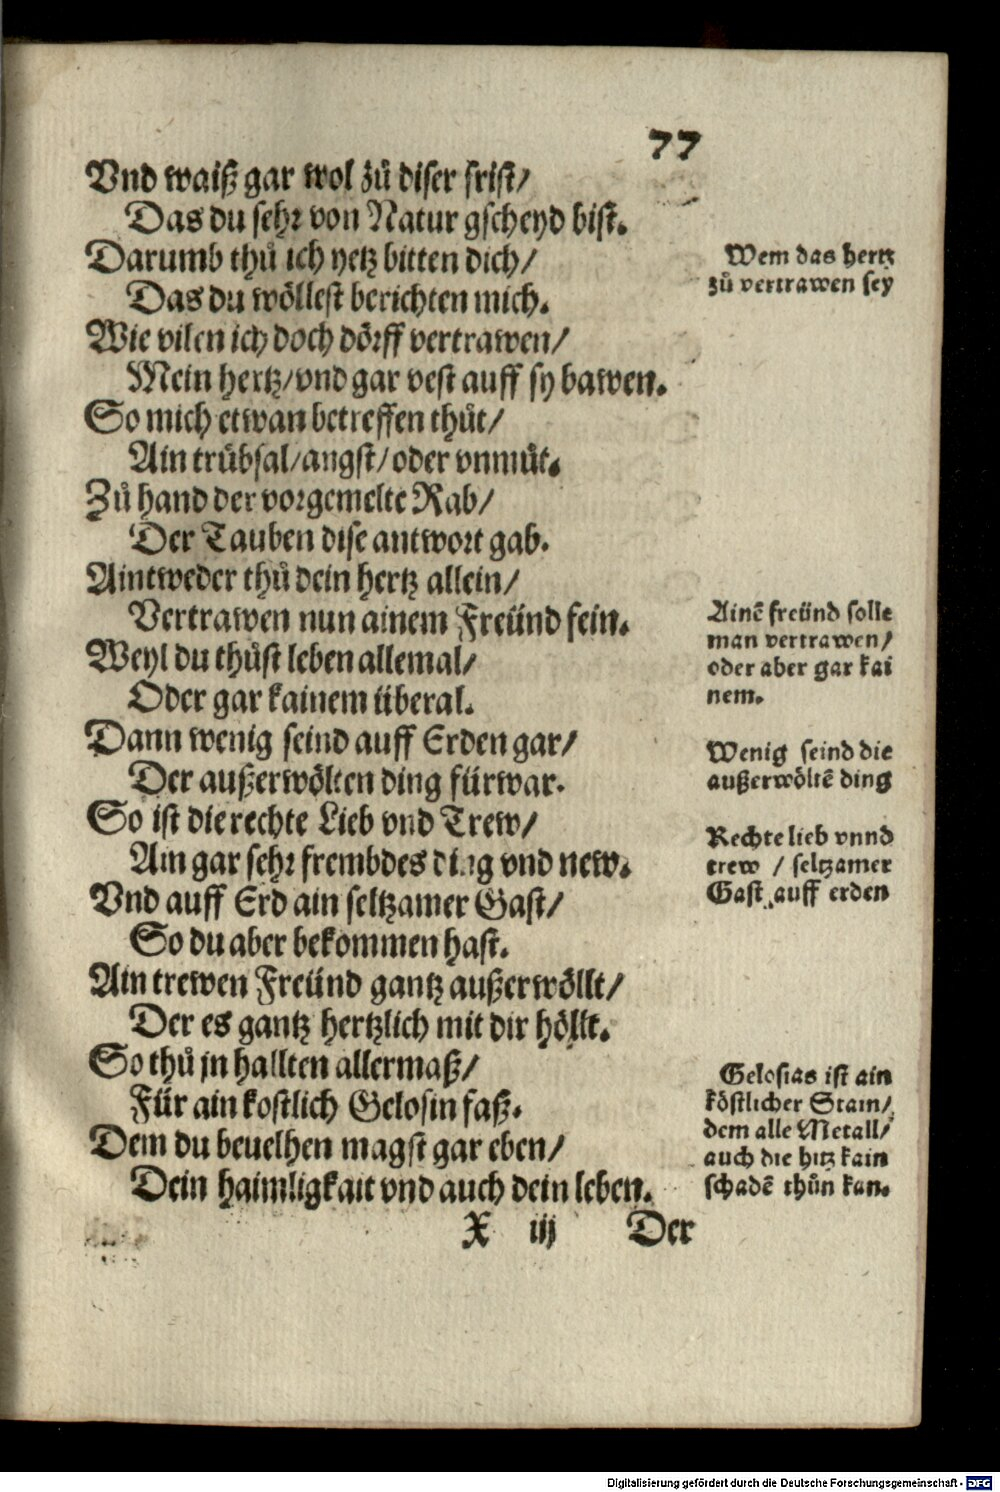 77
Vnd waiß gar wol zů diser frist/
Das du sehr von Natur gscheyd bist.
Darumb thů ich yetz bitten dich/
Das du wöllest berichten mich.
Wie vilen ich doch dörff vertrawen/
Mein hertz/vnd gar vest auff sy bawen.
So mich etwan betreffen thůt/
Ain trübsal/angst/oder vnmůt.
Zů hand der vorgemelte Rab/
Der Tauben dise antwort gab.
Aintweder thů dein hertz allein/
Vertrawen nun ainem Freünd fein.
Weyl du thůst leben allemal/
Oder gar kainem überal.
Dann wenig seind auff Erden gar/
Der außerwölten ding fürwar.
So ist die rechte Lieb vnd Trew/
Ain gar sehr frembdes ding vnd new.
Vnd auff Erd ain seltzamer Gast/
So du aber bekommen hast.
Ain trewen Freünd gantz außerwöllt/
Der es gantz hertzlich mit dir höllt.
So thů jn hallten allermaß/
Für ain kostlich Gelosin faß.
Dem du beuelhen magst gar eben/
Dein haimligkait vnd auch dein leben.
X iij Der
Wem das hertz
zů vertrawen sey
Ainē freünd solle
man vertrawen/
oder aber gar kai
nem.
Wenig seind die
außerwöltē ding
Rechte lieb vnnd
trew / seltzamer
Gast auff erden
Gelosias ist ain
köstlicher Stain/
dem alle Metall/
auch die hitz kain
schadē thůn kan.
Digitalisierung gefördert durch die Deutsche Forschungsgemeinschaft - DFG